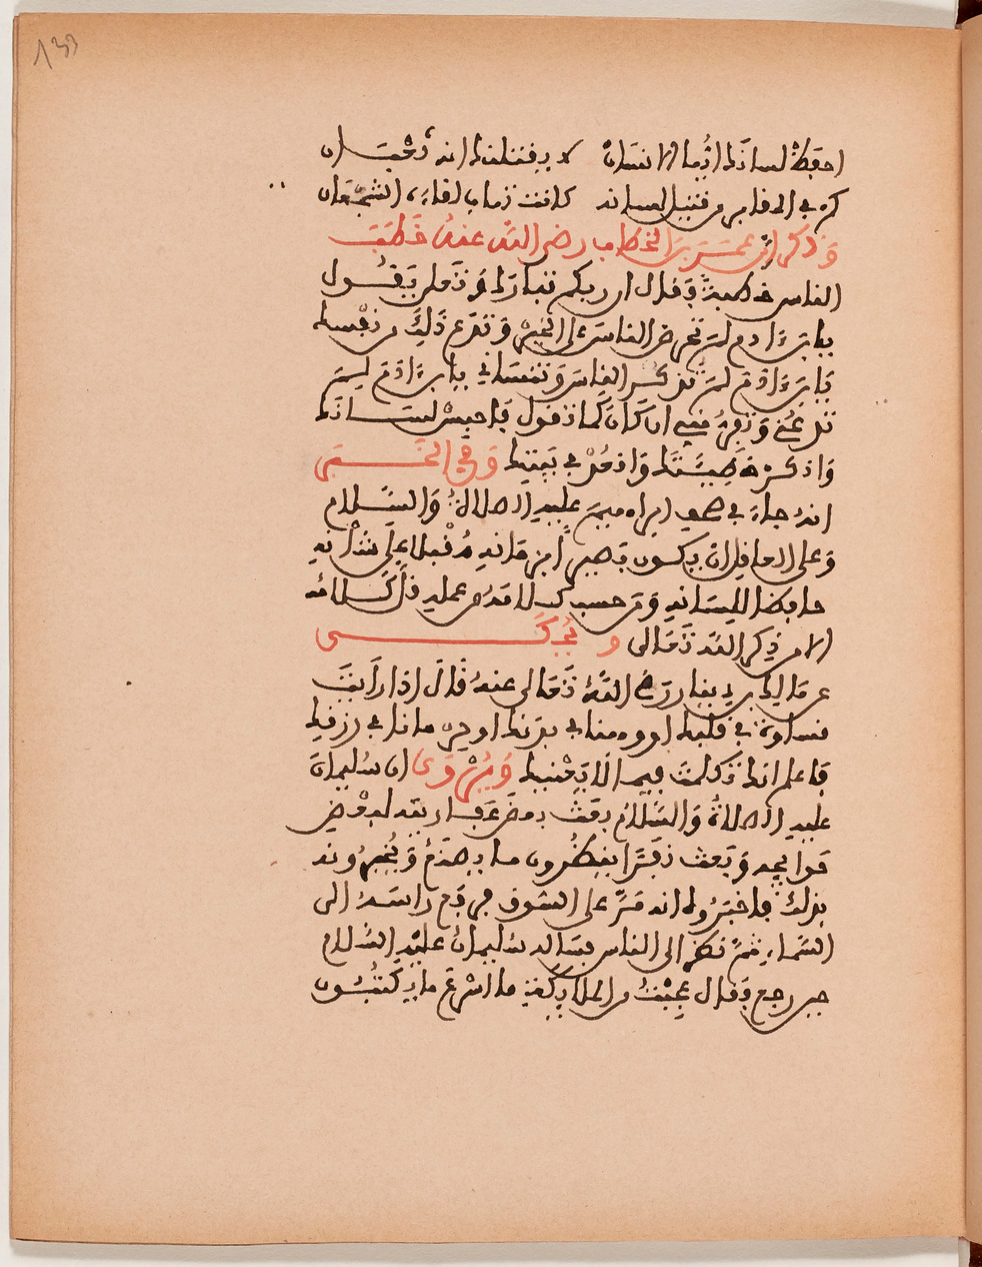 133
احفظ لسانك أيها الإنسان لا يقتلنك إنه ثعبان
كم في المقابر من قتيل لسانه كانت تهاب لقاءه الشجعان
وذكر أن عمر بن الخطاب رضي الله عنه خطب
الناس خطبة فقال إن ربكم تبارك وتعلى يقول
يابن ءادم لم تحرض الناس على الخير وتدع ذلك من نفسك
يابن ءادم لم تذكر الناس وتنساني يابن ءادم لم
تدعني وتفر مني إن كان كما تقول فاحبس لسانك
واذكر خطيئتك واقعد في بيتك وفي الخبر
أنه جاء في صحف إبراهيم عليه الصلاة والسلام
وعلى العاقل أن يكون بصيرا بزمانه مقبلا على شأنه
حافظا للسانه ومن حسب كلامه من عمله قل كلامه
إلا من ذكر الله تعالى ويحكى
عن مالك بن دينار رضي الله تعالى عنه قال إذا رأيت
قساوة في قلبك أو وهنا في بدنك أو حرمانا في رزقك
فاعلم أنك تكلمت فيما لا يعنيك ويروى أن سليمان
عليه الصلاة والسلام بعث بعض عفاريته لبعض
حوايجه وبعث نفرا ينظرون ما يصنع ويخبرونه
بذلك فأخبروه أنه مر على السوق فرفع رأسه إلى
السماء ثم نظر إلى الناس فسأله سليمان عليه السلام
حين رجع فقال عجبت من الملائكة ما أسرع ما يكتبون